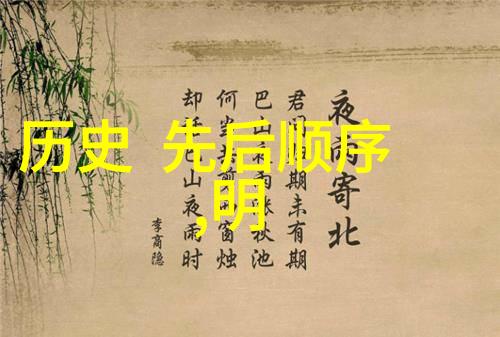 历史 先后顺序
,明
夜雨寄北
君问归期未有期
巴山夜雨涨秋池
何当共剪西窗烛
却话巴山夜雨时
李商隐